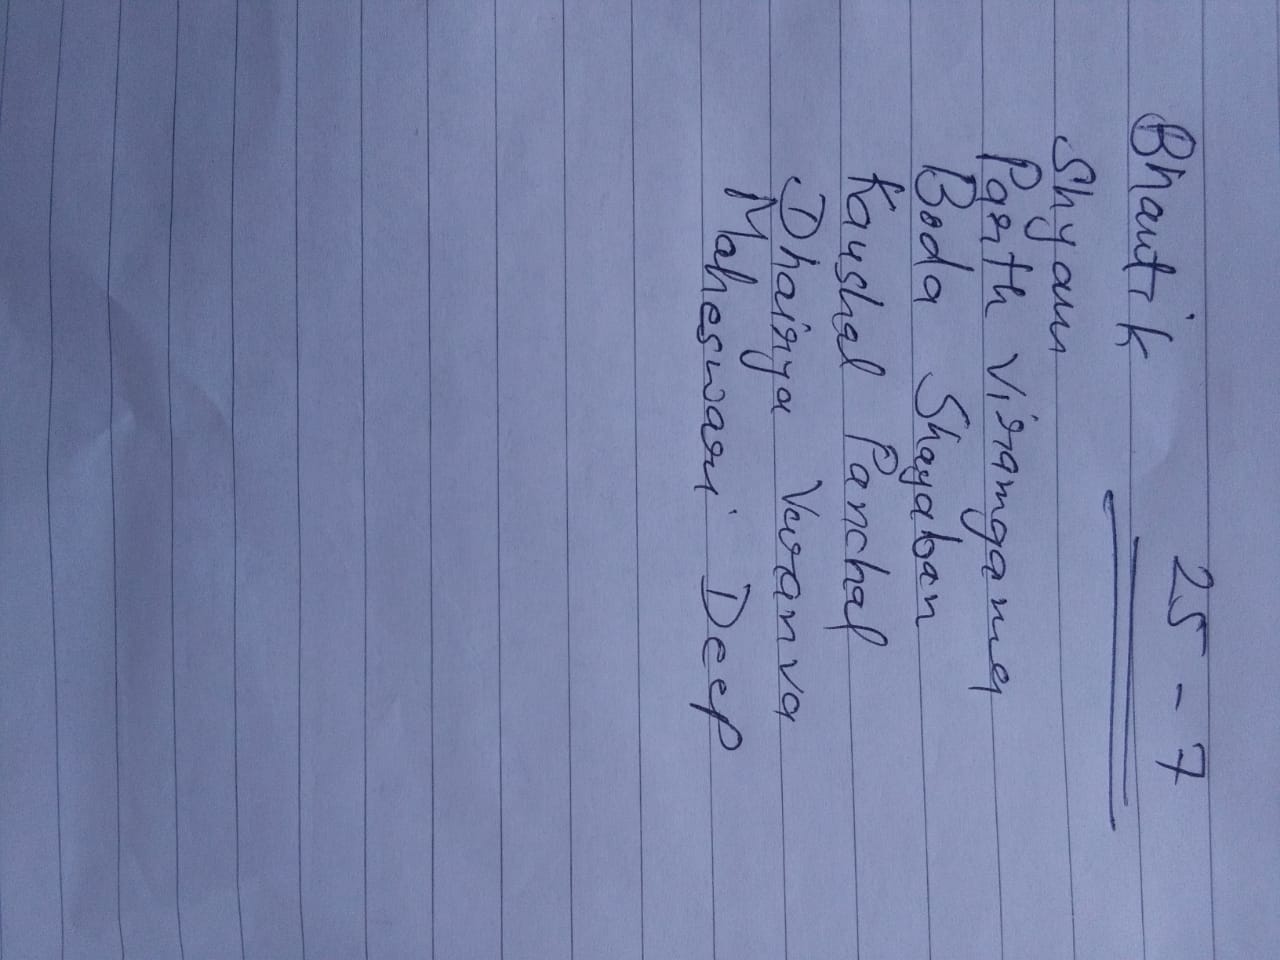 25 - 7
Bhautik
Shyam
Parth Viramgama
Boda Shayaban
Kaushal Panchal
Dhairya Varanva
Maheswari Deep